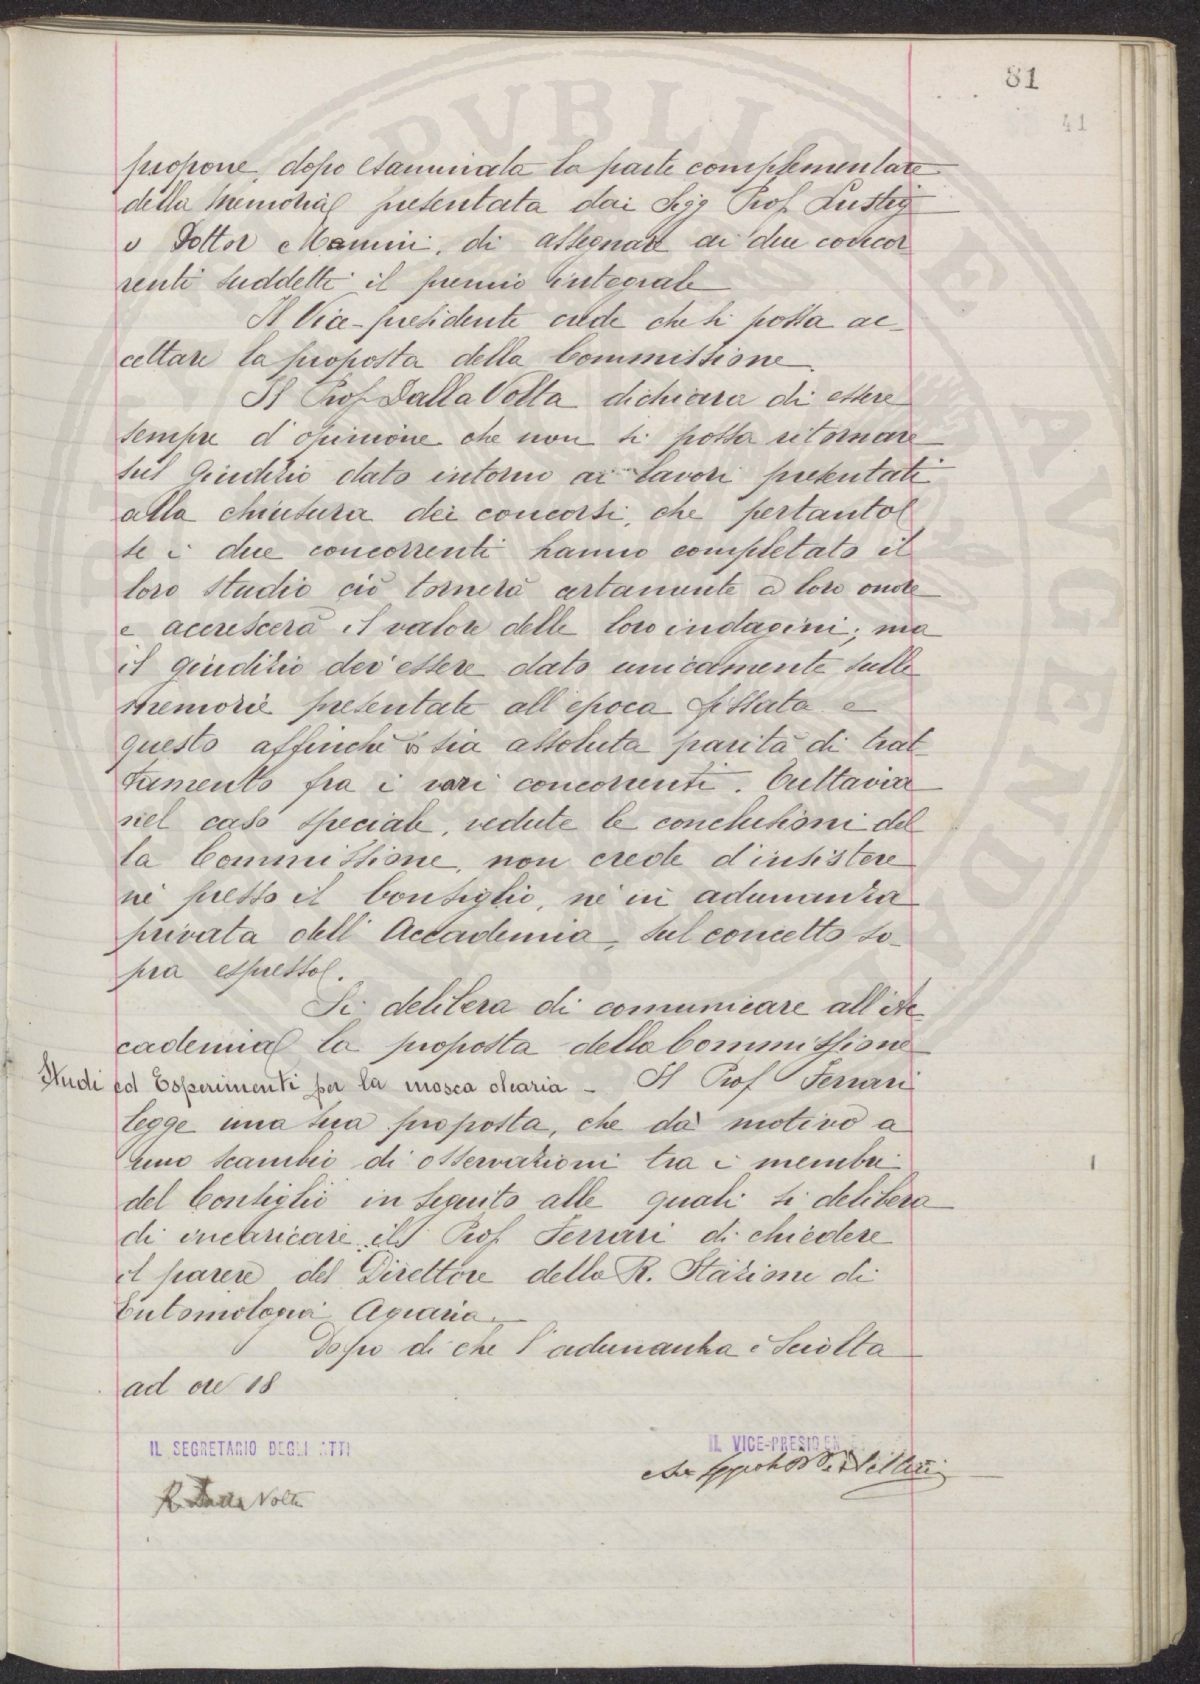 81
41
propone, dopo esaminata la parte complementare
della memoria presentata dai Sigg Prof. Lustig
e Dottor Mannini, di assegnare ai due concor
renti suddetti il premio integrale
Il Vice-presidente crede che si possa ac-
cettare la proposta della Commissione.
Il Prof Dalla Volta dichiara di essere
sempre d'opinione che non si possa ritornare
sul giudizio dato intorno ai lavori presentati
alla chiusura dei concorsi, che pertanto
se i due concorrenti hanno completato il
loro studio ciò tornerà certamente a loro onore
e accrescerà il valore delle loro indagini; ma
il giudizio dev'essere dato unicamente sulle
memorie presentate all'epoca fissata e
questo affinchè sia assoluta parità di trat
tamento fra i vari concorrenti. Tuttavia
nel caso speciale, vedute le conclusioni del
la Commissione, non crede d'insistere
nè presso il Consiglio, nè in adunanza
privata dell'Accademia, sul concetto so-
pra espresso.
Si delibera di comunicare all'Ac
cademia la proposta della Commissione
Studi ed Esperimenti per la mosca olearia - Il Prof Ferrari
legge una sua proposta, che dà motivo a
uno scambio di osservazioni tra i membri
del Consiglio in seguito alle quali si delibera
di incaricare il Prof Ferrari di chiedere
il parere del Direttore della R. Stazione di
Entomologia Agraria.
Dopo di che l'adunanza è sciolta
ad ore 18
IL SEGRETARIO DEGLI ATTI
IL VICE-PRESIDEN
R. Dalla Volta